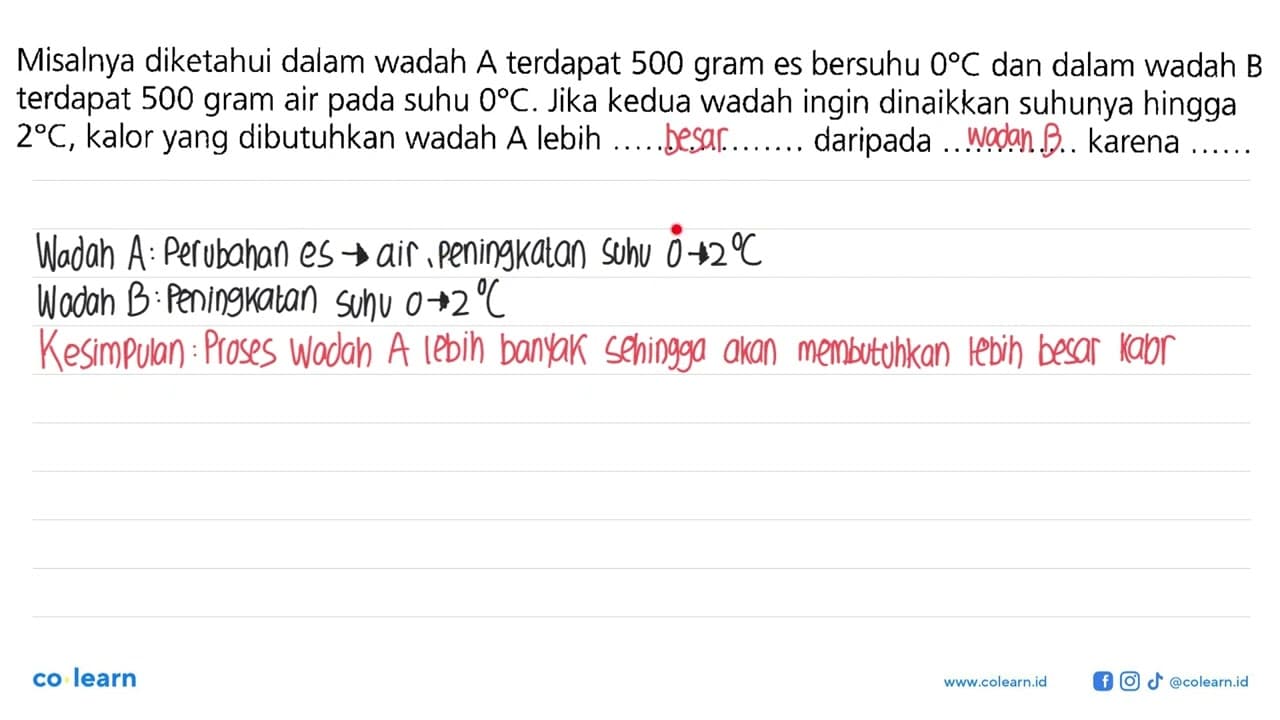 Misalnya diketahui dalam wadah A terdapat 500 gram es bersuhu 0°C dan dalam wadah B
terdapat 500 gram air pada suhu 0°C. Jika kedua wadah ingin dinaikkan suhunya hingga
2°C, kalor yang dibutuhkan wadah A lebih .....besar......... daripada ...wadah B.. karena ......
Wadah A: Perubahan es → air, peningkatan suhu 0→2°C
Wadah B: Peningkatan suhu 0→2°C
Kesimpulan: Proses wadah A lebih banyak sehingga akan membutuhkan lebih besar kalor
co learn
www.colearn.id
@colearn.id